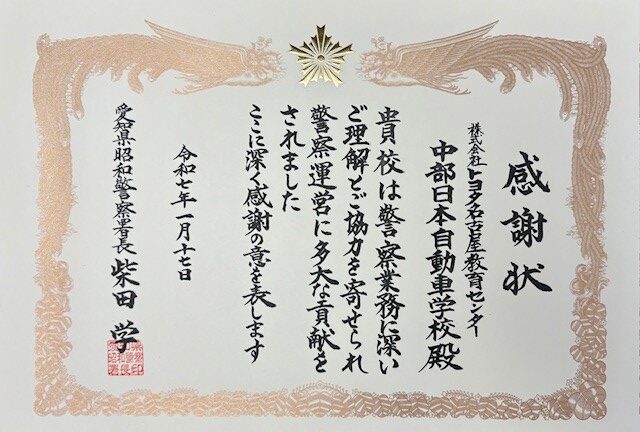 感謝状
株式会社トヨタ名古屋教育センター
中部日本自動車学校殿
貴校は警察業務に深い
ご理解とご協力を寄せられ
警察運営に多大な貢献を
されました
ここに深く感謝の意を表します
令和七年一月十七日
愛知県昭和警察署長 柴田 学